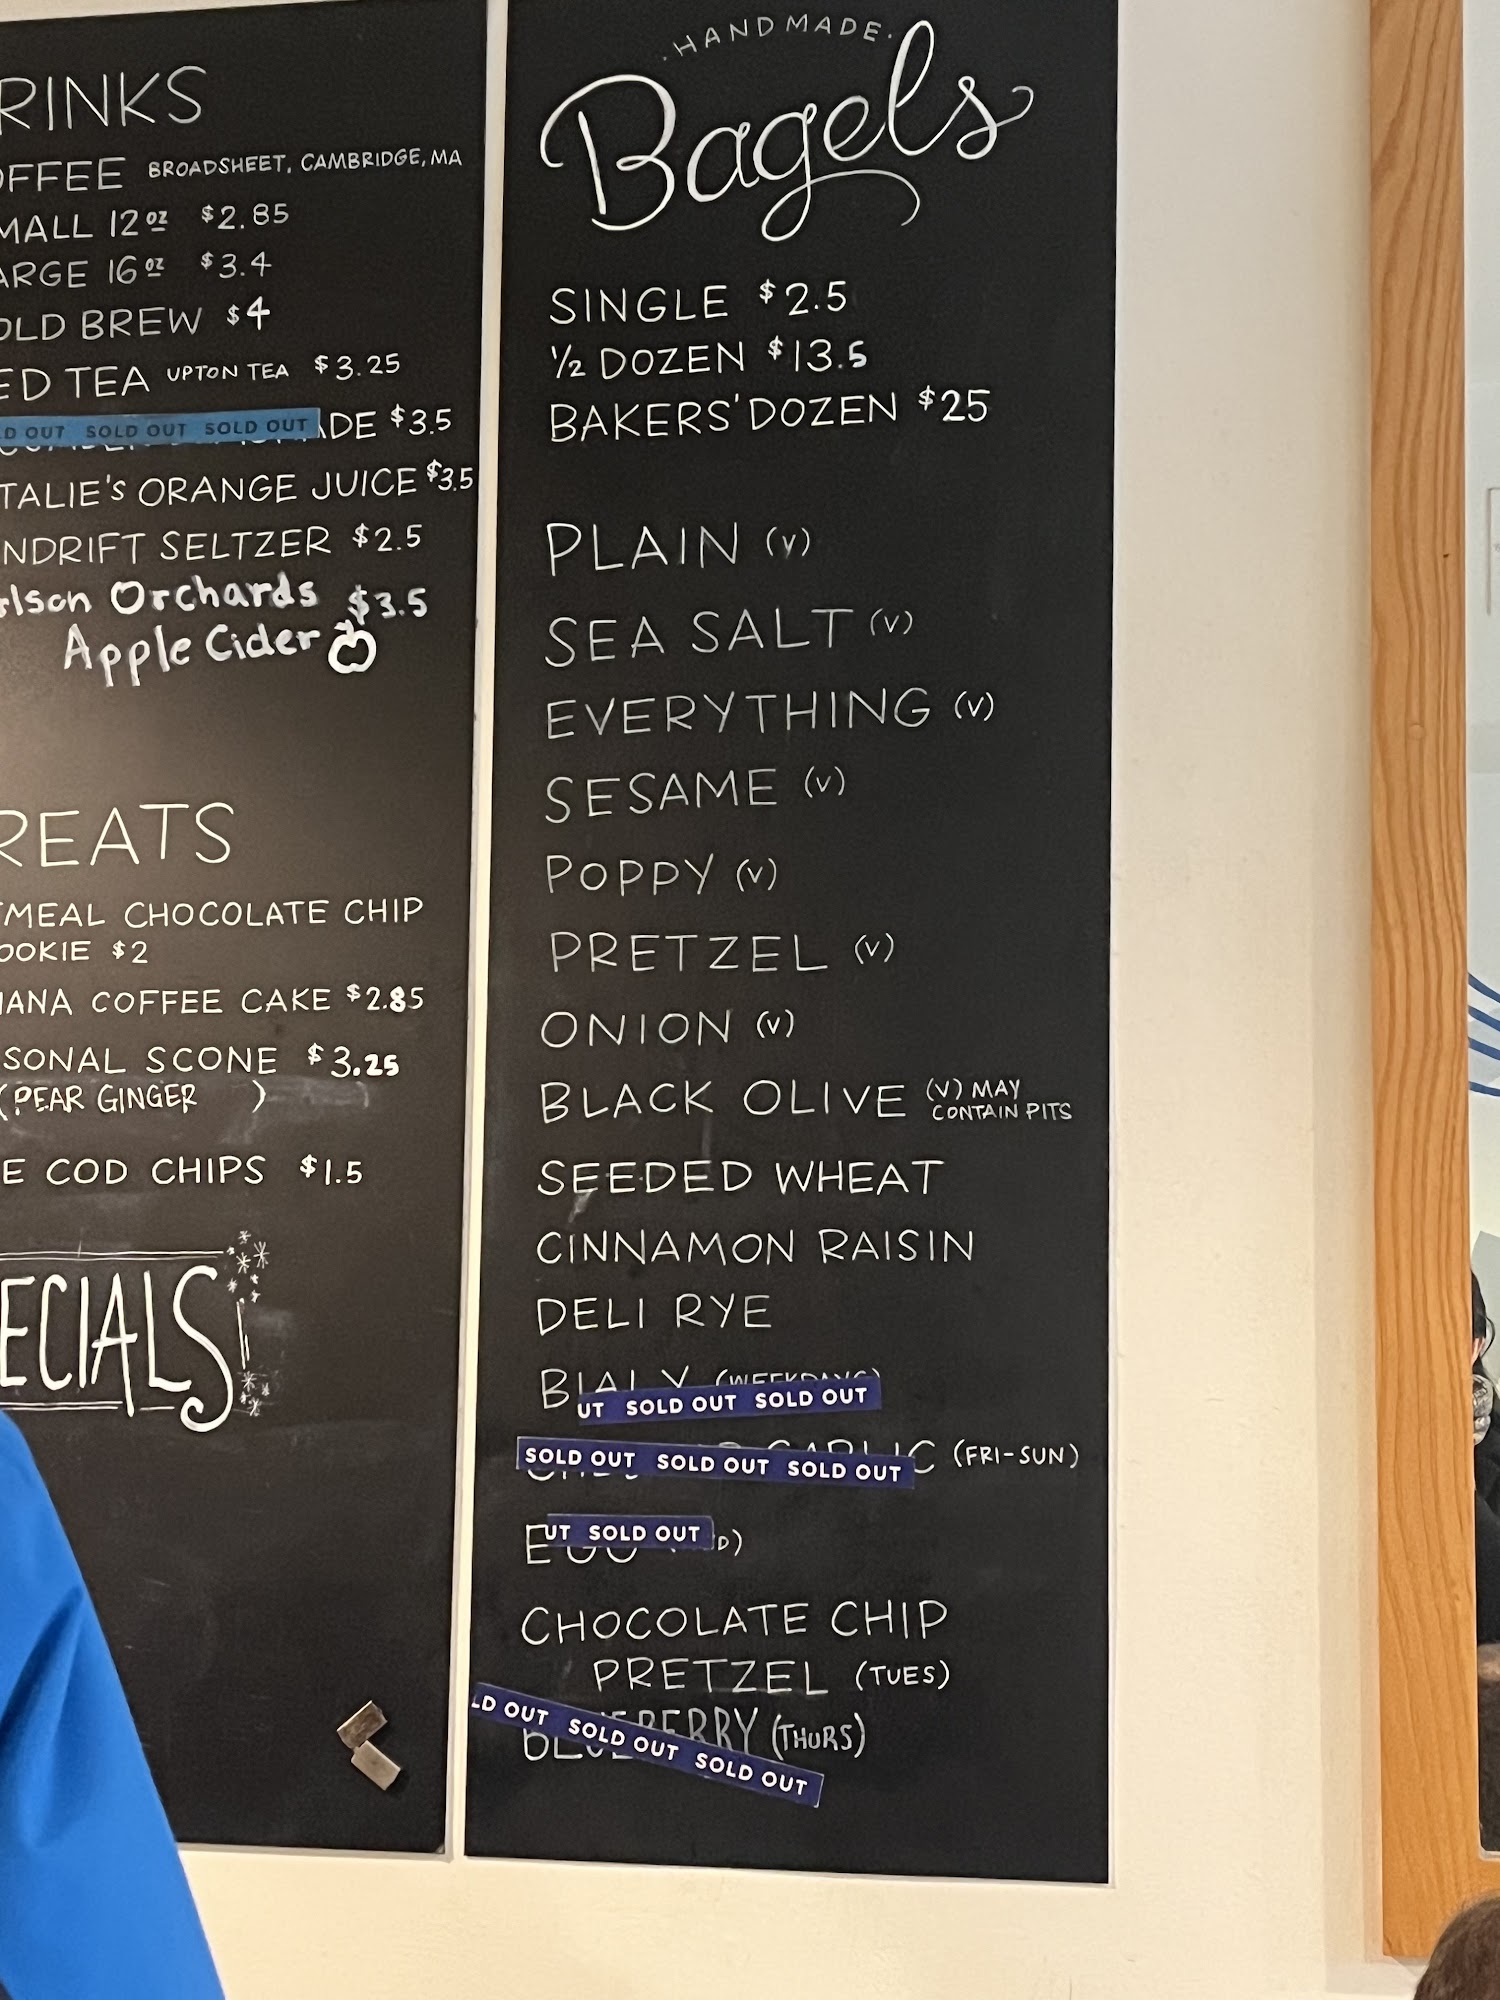 RINKS
OFFEE BROADSHEET, CAMBRIDGE, MA
MALL 12 OZ $2.85
ARGE 16 OZ $3.4
OLD BREW $4
ED TEA UPTON TEA $3.25
D OUT SOLD OUT SOLD OUT ADE $3.5
TALIE'S ORANGE JUICE $3.5
NDRIFT SELTZER $2.5
rlson Orchards $3.5
Apple Cider
REATS
MEAL CHOCOLATE CHIP
OOKIE $2
ANA COFFEE CAKE $2.85
SONAL SCONE $3.25
(PEAR GINGER )
E COD CHIPS $1.5
ECIALS
HANDMADE
Bagels
SINGLE $2.5
1/2 DOZEN $13.5
BAKERS' DOZEN $25
PLAIN (V)
SEA SALT (V)
EVERYTHING (V)
SESAME (V)
POPPY (V)
PRETZEL (V)
ONION (V)
BLACK OLIVE (V) MAY
CONTAIN PITS
SEEDED WHEAT
CINNAMON RAISIN
DELI RYE
BIALY (WEEKDAYS)
UT SOLD OUT SOLD OUT
SOLD OUT SOLD OUT SOLD OUT GARLIC (FRI-SUN)
UT SOLD OUT
EGG D)
CHOCOLATE CHIP
PRETZEL (TUES)
LD OUT SOLD OUT SOLD OUT
BLUEBERRY (THURS)